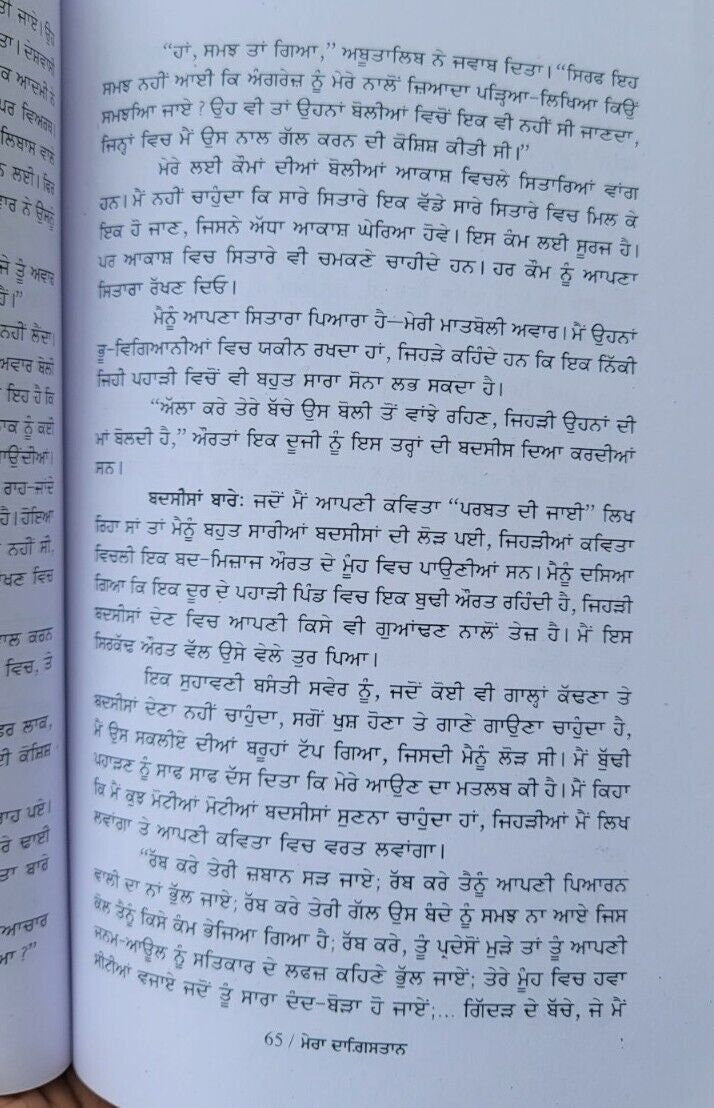 ਤੀ ਜਾਏ। ਉਹ
ਤਾ। ਦੇਸ਼ਵਾਸੀ
ਕ ਆਦਮੀ ਨੇ
ਪਰ ਵਿਅਰਥ।
ਲਿਬਾਸ ਵਾਲੇ
ਨ ਲਈ। ਫਿਰ
ਵਾਰ ਨੇ ਉਸਨੂੰ
ਜੇ ਤੂੰ ਅਵਾਰ
ਹੈਂ।”
ਨਹੀਂ ਲੈਂਦਾ।
ਅਵਾਰ ਬੋਲੀ
ਇਹ ਹੈ ਕਿ
ਾਕ ਨੂੰ ਕਈ
ਪਾਉਂਦੀਆਂ।
ਰਾਹ-ਜਾਂਦੇ
ਹੈ। ਹੋਇਆ
ਨਹੀਂ ਸੀ,
ਖਣ ਵਿਚ
ਾਲ ਕਰਨ
ਵਿਚ, ਤੇ
ਤਰ ਲਾਕ,
ਈ ਕੋਸ਼ਿਸ਼
ਾਹ ਪਏ।
ਰੇ ਢਾਈ
ਤਾ ਬਾਰੇ
ਆਚਾਰ
ਆ?”
“ਹਾਂ, ਸਮਝ ਤਾਂ ਗਿਆ,” ਅਬੂਤਾਲਿਬ ਨੇ ਜਵਾਬ ਦਿਤਾ। “ਸਿਰਫ ਇਹ
ਸਮਝ ਨਹੀਂ ਆਈ ਕਿ ਅੰਗਰੇਜ਼ ਨੂੰ ਮੇਰੇ ਨਾਲੋਂ ਜ਼ਿਆਦਾ ਪੜ੍ਹਿਆ-ਲਿਖਿਆ ਕਿਉਂ
ਸਮਝਆਿ ਜਾਏ? ਉਹ ਵੀ ਤਾਂ ਉਹਨਾਂ ਬੋਲੀਆਂ ਵਿਚੋਂ ਇਕ ਵੀ ਨਹੀਂ ਸੀ ਜਾਣਦਾ,
ਜਿਨ੍ਹਾਂ ਵਿਚ ਮੈਂ ਉਸ ਨਾਲ ਗੱਲ ਕਰਨ ਦੀ ਕੋਸ਼ਿਸ਼ ਕੀਤੀ ਸੀ।”
ਮੇਰੇ ਲਈ ਕੌਮਾਂ ਦੀਆਂ ਬੋਲੀਆਂ ਆਕਾਸ਼ ਵਿਚਲੇ ਸਿਤਾਰਿਆਂ ਵਾਂਗ
ਹਨ। ਮੈਂ ਨਹੀਂ ਚਾਹੁੰਦਾ ਕਿ ਸਾਰੇ ਸਿਤਾਰੇ ਇਕ ਵੱਡੇ ਸਾਰੇ ਸਿਤਾਰੇ ਵਿਚ ਮਿਲ ਕੇ
ਇਕ ਹੋ ਜਾਣ, ਜਿਸਨੇ ਅੱਧਾ ਆਕਾਸ਼ ਘੇਰਿਆ ਹੋਵੇ। ਇਸ ਕੰਮ ਲਈ ਸੂਰਜ ਹੈ।
ਪਰ ਆਕਾਸ਼ ਵਿਚ ਸਿਤਾਰੇ ਵੀ ਚਮਕਣੇ ਚਾਹੀਦੇ ਹਨ। ਹਰ ਕੌਮ ਨੂੰ ਆਪਣਾ
ਸਿਤਾਰਾ ਰੱਖਣ ਦਿਓ।
ਮੈਨੂੰ ਆਪਣਾ ਸਿਤਾਰਾ ਪਿਆਰਾ ਹੈ—ਮੇਰੀ ਮਾਤਬੋਲੀ ਅਵਾਰ। ਮੈਂ ਉਹਨਾਂ
ਭੂ-ਵਿਗਿਆਨੀਆਂ ਵਿਚ ਯਕੀਨ ਰਖਦਾ ਹਾਂ, ਜਿਹੜੇ ਕਹਿੰਦੇ ਹਨ ਕਿ ਇਕ ਨਿੱਕੀ
ਜਿਹੀ ਪਹਾੜੀ ਵਿਚੋਂ ਵੀ ਬਹੁਤ ਸਾਰਾ ਸੋਨਾ ਲਭ ਸਕਦਾ ਹੈ।
“ਅੱਲਾ ਕਰੇ ਤੇਰੇ ਬੱਚੇ ਉਸ ਬੋਲੀ ਤੋਂ ਵਾਂਝੇ ਰਹਿਣ, ਜਿਹੜੀ ਉਹਨਾਂ ਦੀ
ਮਾਂ ਬੋਲਦੀ ਹੈ,” ਔਰਤਾਂ ਇਕ ਦੂਜੀ ਨੂੰ ਇਸ ਤਰ੍ਹਾਂ ਦੀ ਬਦਸੀਸ ਦਿਆ ਕਰਦੀਆਂ
ਸਨ।
ਬਦਸੀਸਾਂ ਬਾਰੇ: ਜਦੋਂ ਮੈਂ ਆਪਣੀ ਕਵਿਤਾ “ਪਰਬਤ ਦੀ ਜਾਈ” ਲਿਖ
ਰਿਹਾ ਸਾਂ ਤਾਂ ਮੈਨੂੰ ਬਹੁਤ ਸਾਰੀਆਂ ਬਦਸੀਸਾਂ ਦੀ ਲੋੜ ਪਈ, ਜਿਹੜੀਆਂ ਕਵਿਤਾ
ਵਿਚਲੀ ਇਕ ਬਦ-ਮਿਜ਼ਾਜ ਔਰਤ ਦੇ ਮੂੰਹ ਵਿਚ ਪਾਉਣੀਆਂ ਸਨ। ਮੈਨੂੰ ਦਸਿਆ
ਗਿਆ ਕਿ ਇਕ ਦੂਰ ਦੇ ਪਹਾੜੀ ਪਿੰਡ ਵਿਚ ਇਕ ਬੁਢੀ ਔਰਤ ਰਹਿੰਦੀ ਹੈ, ਜਿਹੜੀ
ਬਦਸੀਸਾਂ ਦੇਣ ਵਿਚ ਆਪਣੀ ਕਿਸੇ ਵੀ ਗੁਆਂਢਣ ਨਾਲੋਂ ਤੇਜ਼ ਹੈ। ਮੈਂ ਇਸ
ਸਿਰਕੱਢ ਔਰਤ ਵੱਲ ਉਸੇ ਵੇਲੇ ਤੁਰ ਪਿਆ।
ਇਕ ਸੁਹਾਵਣੀ ਬਸੰਤੀ ਸਵੇਰ ਨੂੰ, ਜਦੋਂ ਕੋਈ ਵੀ ਗਾਲ੍ਹਾਂ ਕੱਢਣਾ ਤੇ
ਬਦਸੀਸਾਂ ਦੇਣਾ ਨਹੀਂ ਚਾਹੁੰਦਾ, ਸਗੋਂ ਖੁਸ਼ ਹੋਣਾ ਤੇ ਗਾਣੇ ਗਾਉਣਾ ਚਾਹੁੰਦਾ ਹੈ,
ਮੈਂ ਉਸ ਸਕਲੀਏ ਦੀਆਂ ਬਰੂਹਾਂ ਟੱਪ ਗਿਆ, ਜਿਸਦੀ ਮੈਨੂੰ ਲੋੜ ਸੀ। ਮੈਂ ਬੁੱਢੀ
ਪਹਾੜਣ ਨੂੰ ਸਾਫ ਸਾਫ ਦੱਸ ਦਿਤਾ ਕਿ ਮੇਰੇ ਆਉਣ ਦਾ ਮਤਲਬ ਕੀ ਹੈ। ਮੈਂ ਕਿਹਾ
ਕਿ ਮੈਂ ਕੁਝ ਮੋਟੀਆਂ ਮੋਟੀਆਂ ਬਦਸੀਸਾਂ ਸੁਣਨਾ ਚਾਹੁੰਦਾ ਹਾਂ, ਜਿਹੜੀਆਂ ਮੈਂ ਲਿਖ
ਲਵਾਂਗਾ ਤੇ ਆਪਣੀ ਕਵਿਤਾ ਵਿਚ ਵਰਤ ਲਵਾਂਗਾ।
“ਰੱਬ ਕਰੇ ਤੇਰੀ ਜ਼ਬਾਨ ਸੜ ਜਾਏ; ਰੱਬ ਕਰੇ ਤੈਨੂੰ ਆਪਣੀ ਪਿਆਰਨ
ਵਾਲੀ ਦਾ ਨਾਂ ਭੁੱਲ ਜਾਏ; ਰੱਬ ਕਰੇ ਤੇਰੀ ਗੱਲ ਉਸ ਬੰਦੇ ਨੂੰ ਸਮਝ ਨਾ ਆਏ ਜਿਸ
ਕੋਲ ਤੈਨੂੰ ਕਿਸੇ ਕੰਮ ਭੇਜਿਆ ਗਿਆ ਹੈ; ਰੱਬ ਕਰੇ, ਤੂੰ ਪ੍ਰਦੇਸੋਂ ਮੁੜੇ ਤਾਂ ਤੂੰ ਆਪਣੀ
ਜਨਮ-ਆਊਲ ਨੂੰ ਸਤਿਕਾਰ ਦੇ ਲਫਜ਼ ਕਹਿਣੇ ਭੁੱਲ ਜਾਏਂ; ਤੇਰੇ ਮੂੰਹ ਵਿਚ ਹਵਾ
ਸੀਟੀਆਂ ਵਜਾਏ ਜਦੋਂ ਤੂੰ ਸਾਰਾ ਦੰਦ-ਬੋੜਾ ਹੋ ਜਾਏਂ;... ਗਿੱਦੜ ਦੇ ਬੱਚੇ, ਜੇ ਮੈਂ
65 / ਮੇਰਾ ਦਾਗਿਸਤਾਨ